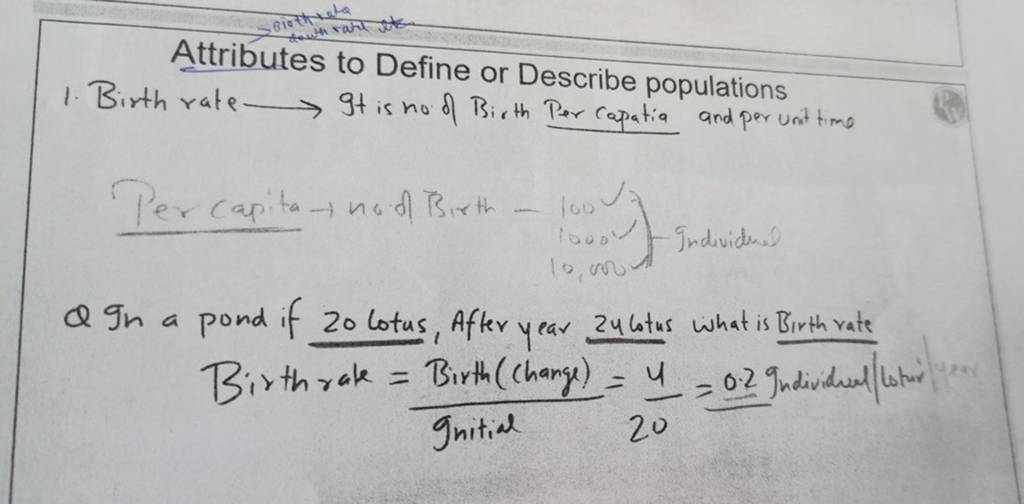 Birth rate
death rate etc
Attributes to Define or Describe populations
1. Birth rate → It is no. of Birth Per Capatia and per unit time
Per capita → no. of Birth - 100
1000 Individual
10,000
Q In a pond if 20 lotus, After year 24 lotus what is Birth rate
Birth rate = Birth (Change) = 4 = 0.2 Individual/lotus/year
Initial 20